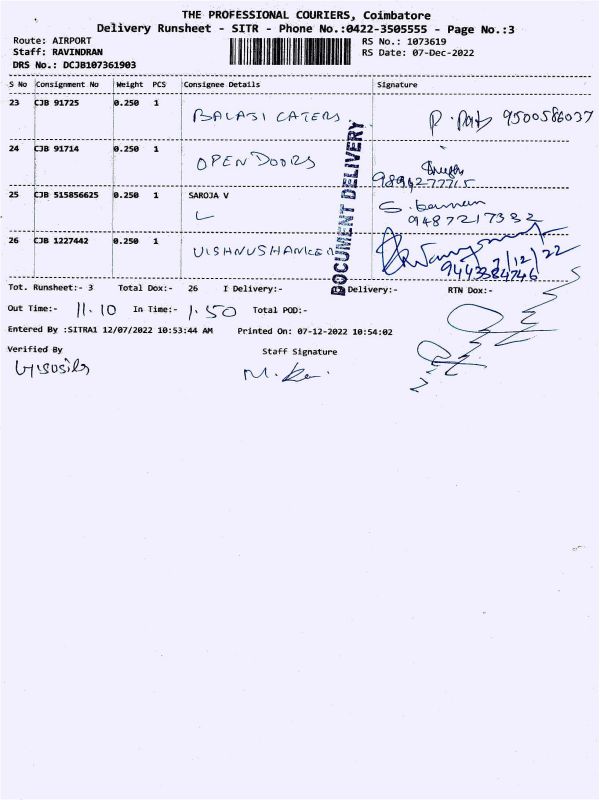 THE PROFESSIONAL COURIERS, Coimbatore
Delivery Runsheet - SITR - Phone No.:0422-3505555 - Page No.:3
Route: AIRPORT RS No.: 1073619
Staff: RAVINDRAN RS Date: 07-Dec-2022
DRS No.: DCJB107361903
S No Consignment No Weight PCS Consignee Details Signature
23 CJB 91725 0.250 1 BALAJI CATERS 9500586037
24 CJB 91714 0.250 1 OPEN DOORS
25 CJB 515856625 0.250 1 SAROJA V
9487217332
26 CJB 1227442 0.250 1 VISHNUSHANKER 7/12/22
9443384746
DOCUMENT DELIVERY
Tot. Runsheet:- 3 Total Dox:- 26 I Delivery:- Delivery:- RTN Dox:-
Out Time:- 11.10 In Time:- 1.50 Total POD:-
Entered By :SITRA1 12/07/2022 10:53:44 AM Printed On: 07-12-2022 10:54:02
Verified By Staff Signature